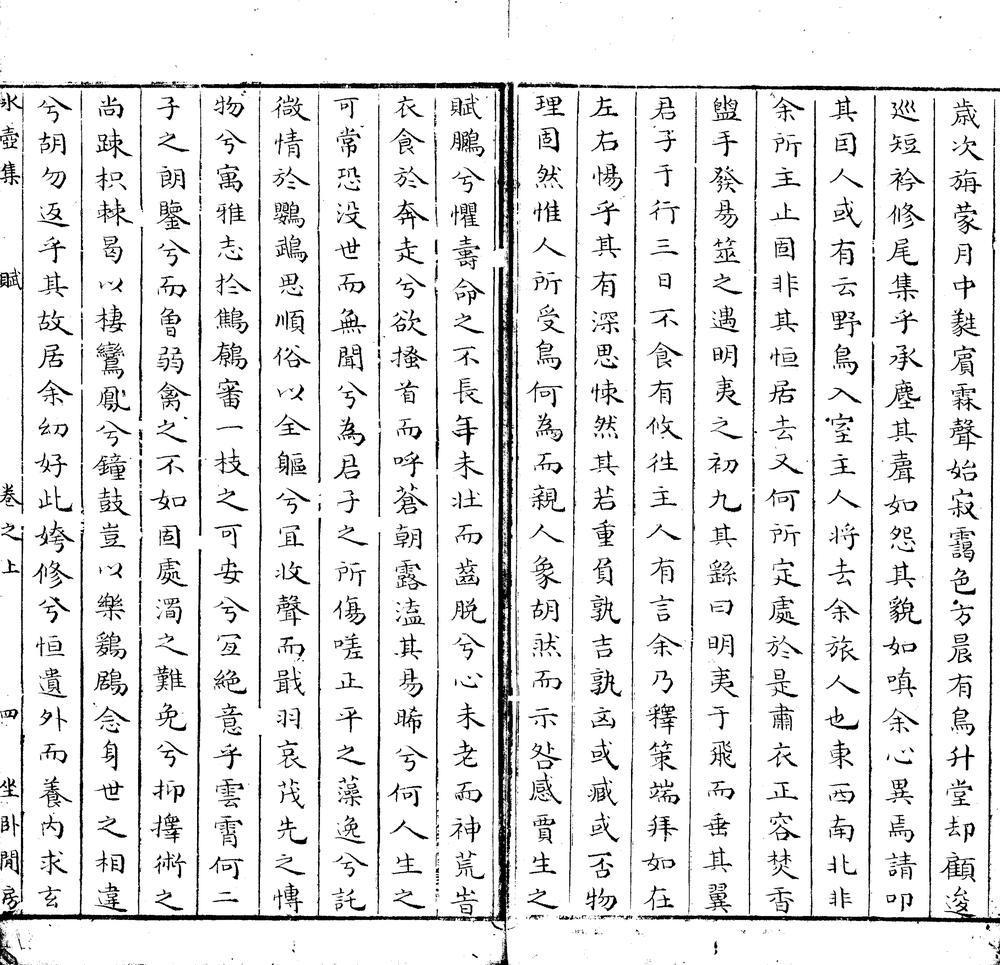 歲次旃蒙月中蕤賓霖聲始寂靄色方晨有鳥升堂却顧逡
巡短衿修尾集乎承塵其聲如怨其貌如嗔余心異焉請叩
其因人或有云野鳥入室主人將去余旅人也東西南北非
余所主止固非其恒居去又何所定處於是肅衣正容焚香
盥手發易筮之遇明夷之初九其繇曰明夷于飛而垂其翼
君子于行三日不食有攸徃主人有言余乃釋策端拜如在
左右惕乎其有深思悚然其若重負孰吉孰凶或臧或否物
理固然惟人所受鳥何為而親人象胡然而示咎感賈生之
賦鵩兮懼壽命之不長年未壯而齒脫兮心未老而神荒旹
衣食於奔走兮欲搔首而呼蒼朝露溘其易晞兮何人生之
可常恐没世而無聞兮為君子之所傷嗟正平之藻逸兮託
微情於鸚鵡思順俗以全軀兮冝收聲而戢羽哀茂先之慱
物兮寓雅志扵鷦鷯審一枝之可安兮冝絕意乎雲霄何二
子之朗鑒兮而曾弱禽之不如固處濁之難免兮抑擇術之
尚踈枳棘曷以棲鸞鳳兮鐘鼓豈以樂鷄鶋念身世之相違
兮胡勿返乎其故居余幼好此姱修兮恒遺外而養內求玄
氷壺集 賦 卷之上 四 坐卧閒房